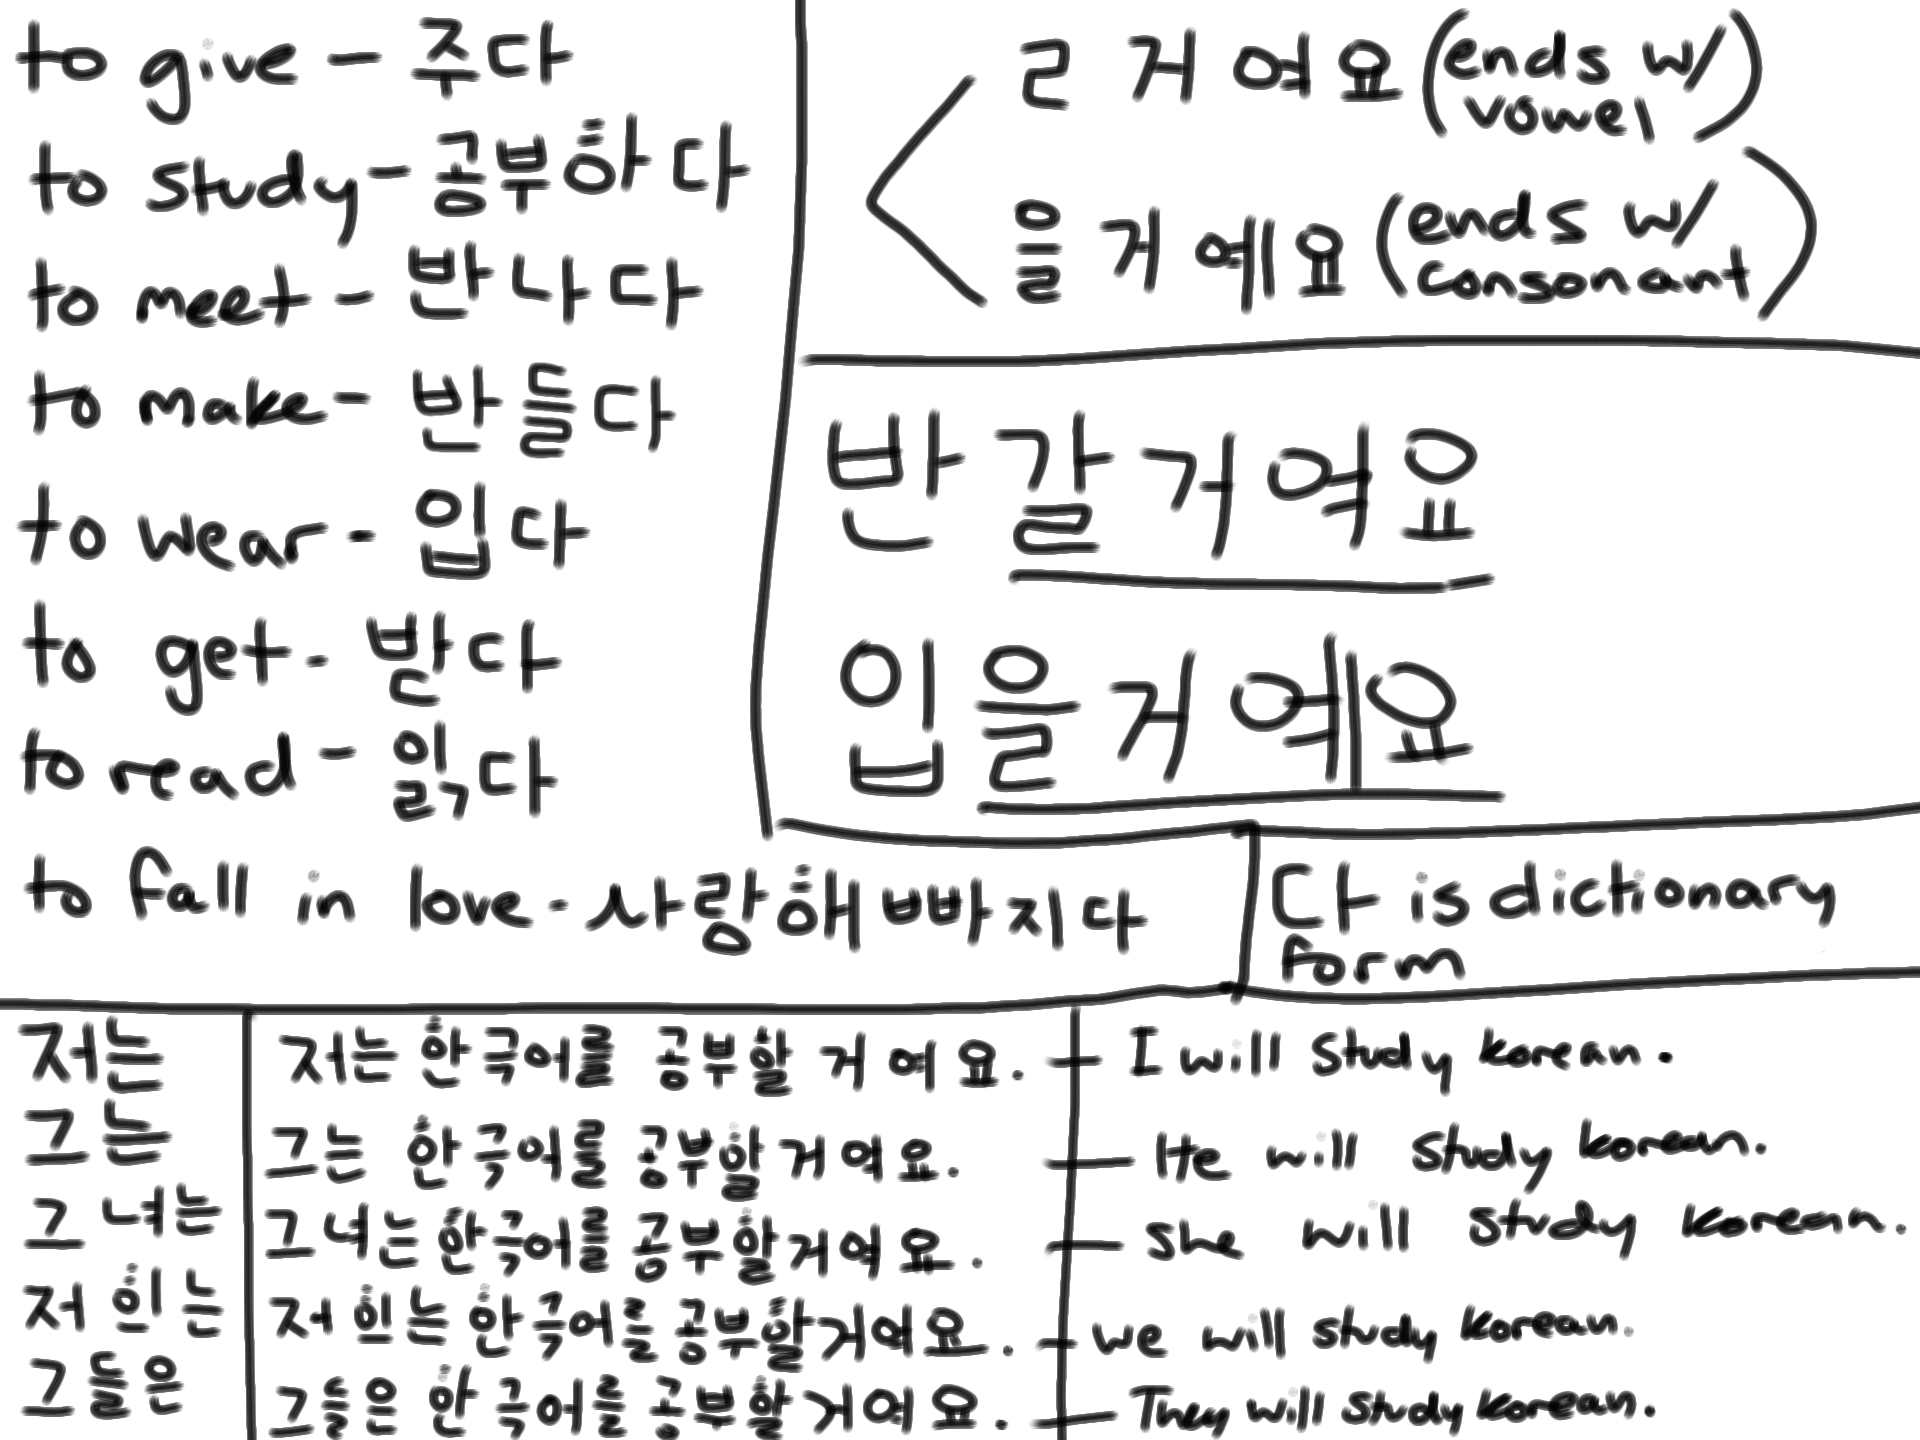 to give - 주다
to study - 공부하다
to meet - 반나다
to make - 반들다
to wear - 입다
to get - 받다
to read - 읽다
to fall in love - 사랑해 빠지다
ㄹ 거여요 (ends w/ vowel)
을 거예요 (ends w/ consonant)
반갈거여요
입을거예요
다 is dictionary
form
저는
그는
그녀는
저희는
그들은
저는 한국어를 공부할 거여요. - I will study korean.
그는 한국어를 공부할 거여요. - He will study korean.
그녀는 한국어를 공부할거여요. - she will study korean.
저희는 한국어를 공부할거여요. - we will study korean.
그들은 한국어를 공부할거여요. - They will study korean.